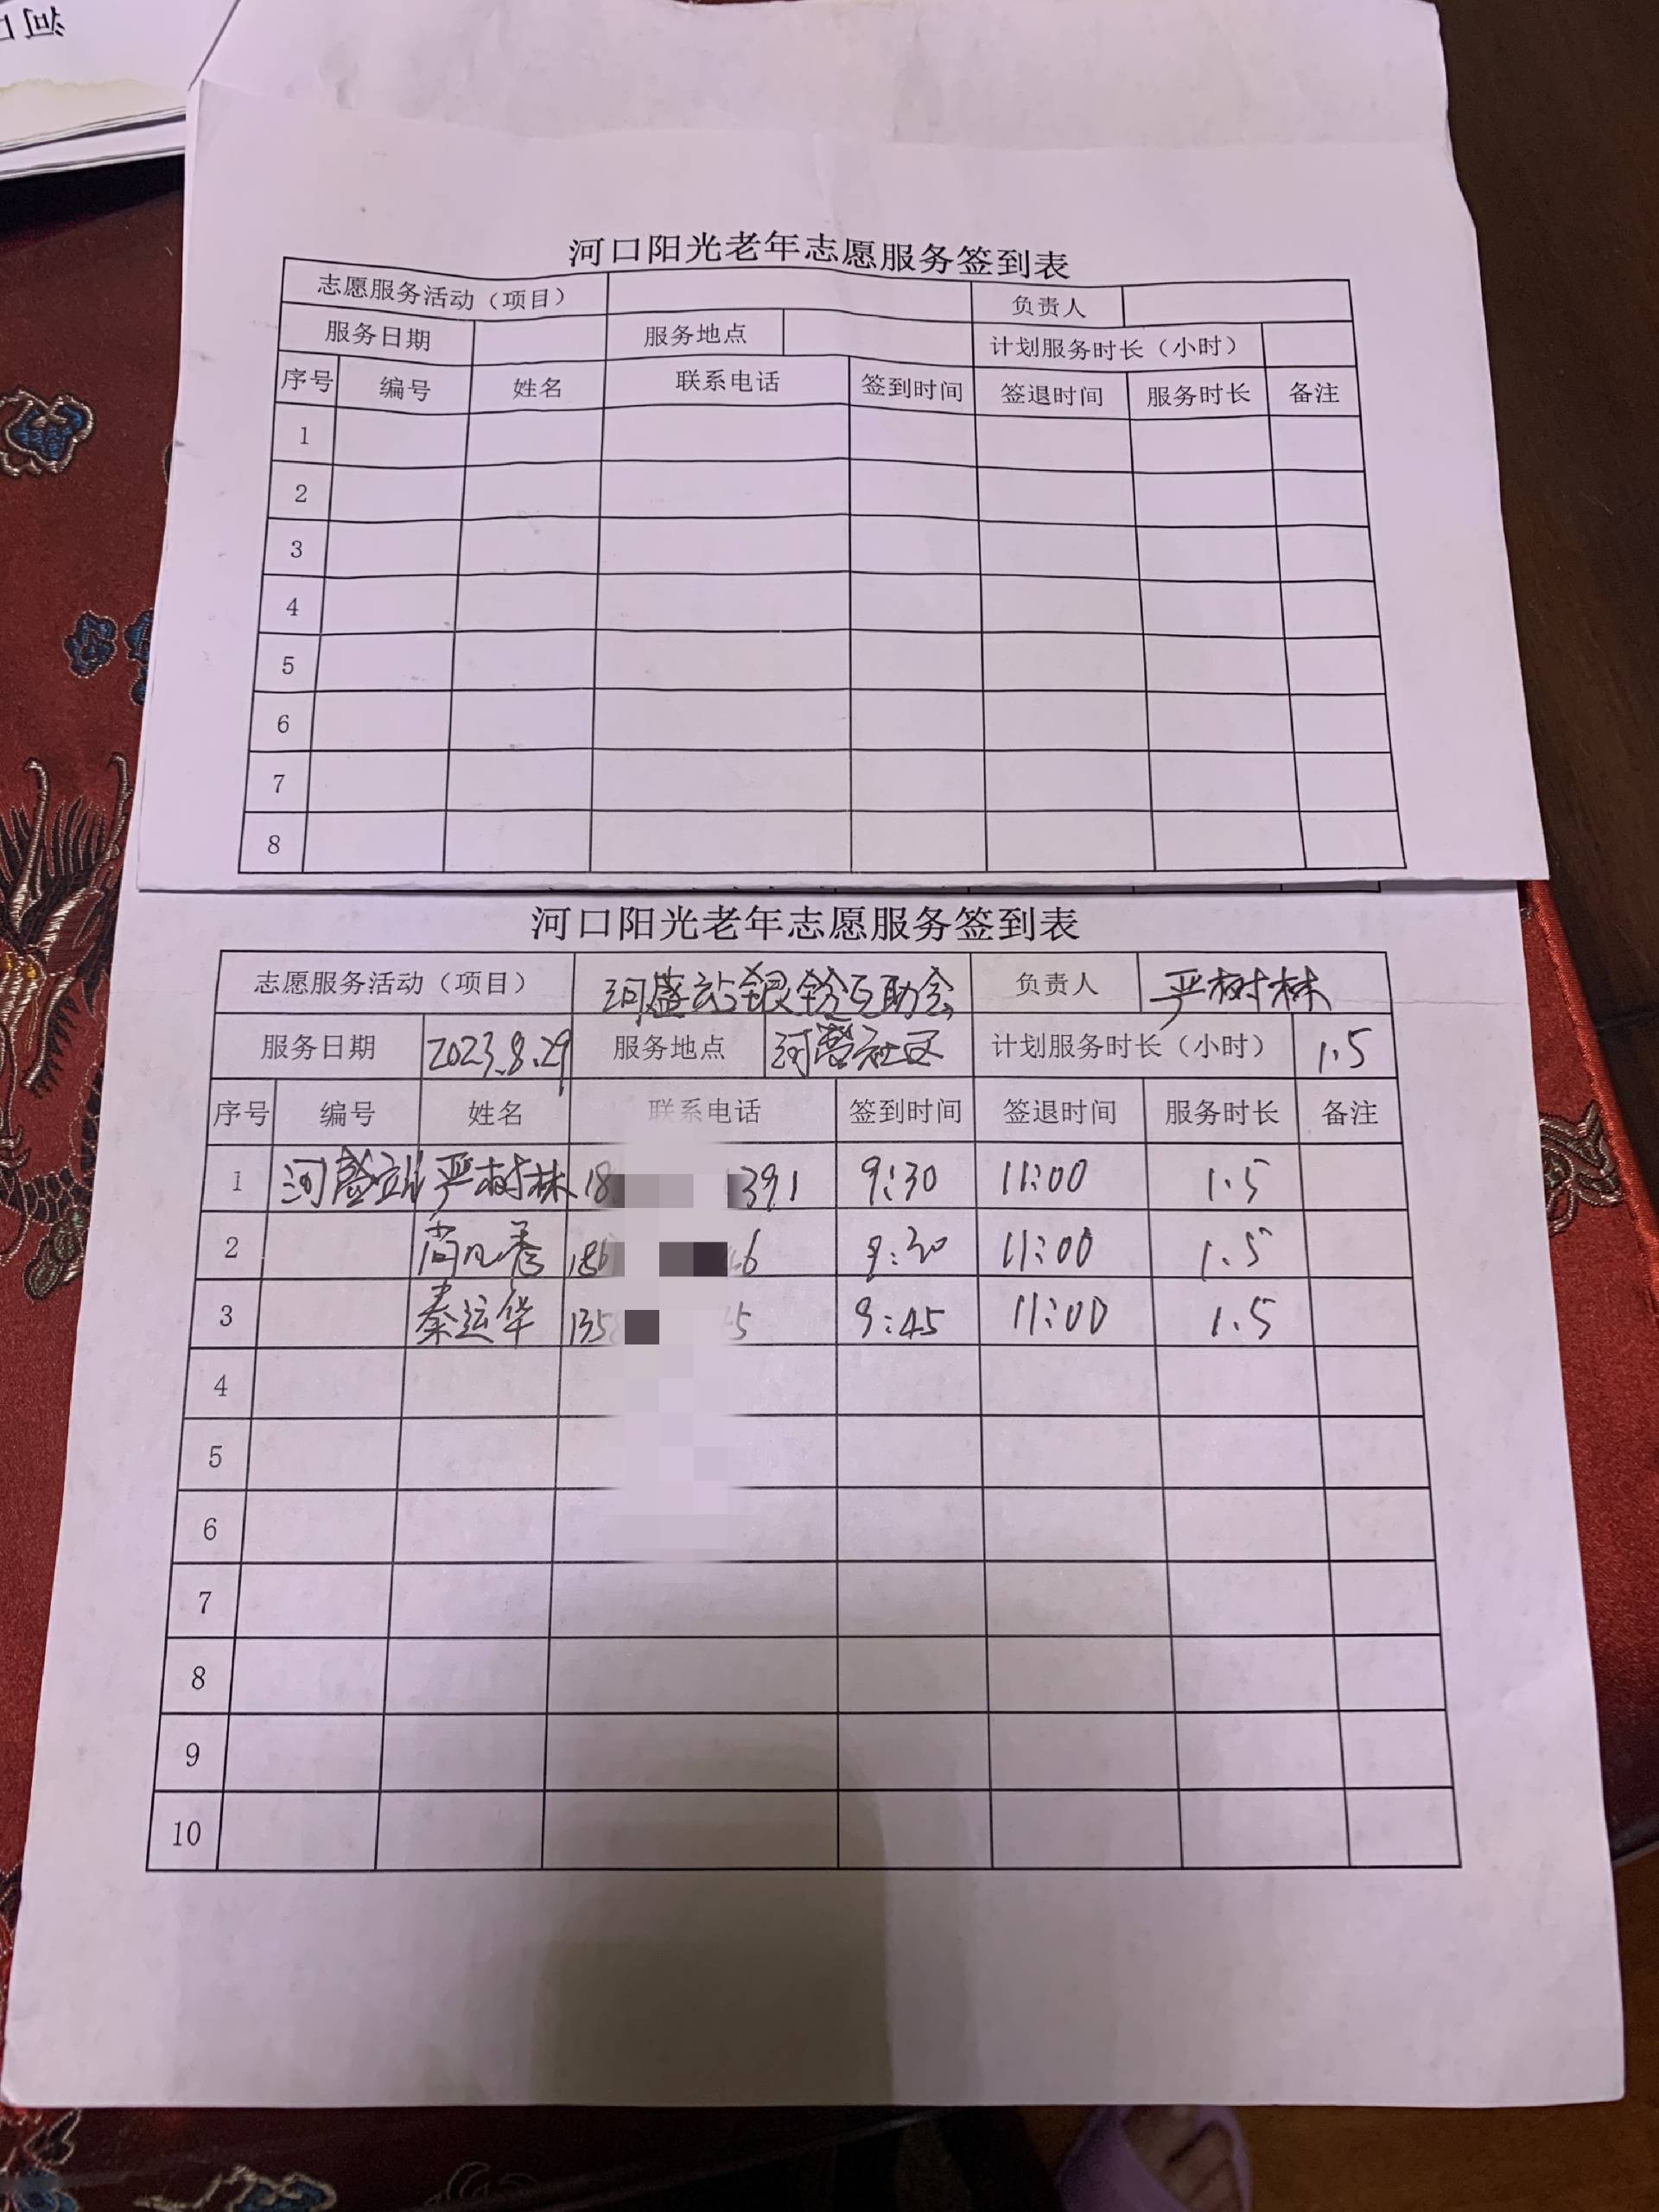 河口
河口阳光老年志愿服务签到表
志愿服务活动（项目） 负责人
服务日期 服务地点 计划服务时长（小时）
序号 编号 姓名 联系电话 签到时间 签退时间 服务时长 备注
1
2
3
4
5
6
7
8
河口阳光老年志愿服务签到表
志愿服务活动（项目） 河盛站银铃互助会 负责人 严树林
服务日期 2023.8.29 服务地点 河营社区 计划服务时长（小时） 1.5
序号 编号 姓名 联系电话 签到时间 签退时间 服务时长 备注
1 河盛站 严树林 18 391 9:30 11:00 1.5
2 尚 秀 186 6 9:30 11:00 1.5
3 秦运华 135 5 9:45 11:00 1.5
4
5
6
7
8
9
10